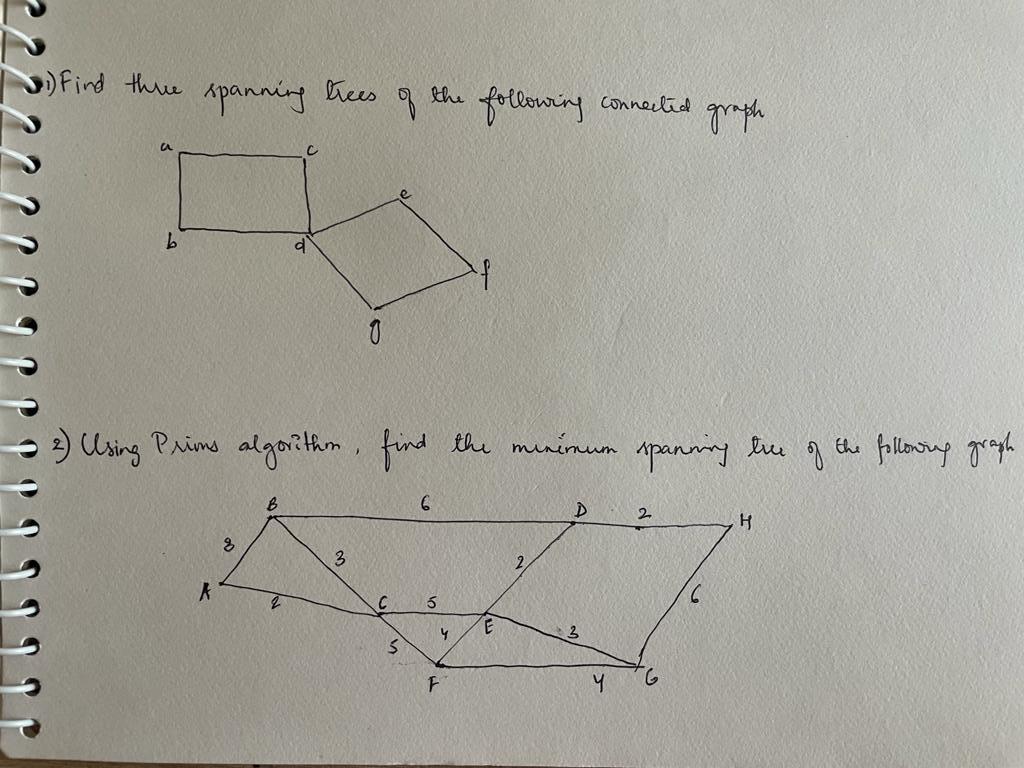 1) Find three spanning trees of the following connected graph
a c
e
b d
f
g
2) Using Prims algorithm, find the minimum spanning tree of the following graph
B 6 D 2 H
8 3 2
A 2 C 5 E 6
5 4 3
F 4 G